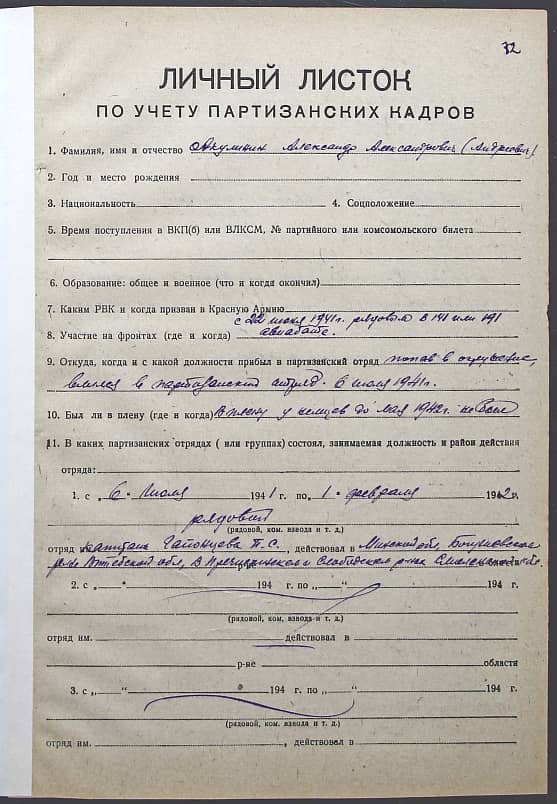 32
ЛИЧНЫЙ ЛИСТОК
ПО УЧЕТУ ПАРТИЗАНСКИХ КАДРОВ
1. Фамилия, имя и отчество Александр Александрович (Андреевич)
2. Год и место рождения
3. Национальность 4. Соцположение
5. Время поступления в ВКП(б) или ВЛКСМ, № партийного или комсомольского билета
6. Образование: общее и военное (что и когда окончил)
7. Каким РВК и когда призван в Красную Армию
с 22 июня 1941г. рядовым в 141 или 191
8. Участие на фронтах (где и когда) авиабате.
9. Откуда, когда и с какой должности прибыл в партизанский отряд попав в окружение,
влился в партизанский отряд. 6 июля 1941г.
10. Был ли в плену (где и когда) В плену у немцев до мая 1942г.
11. В каких партизанских отрядах ( или группах) состоял, занимаемая должность и район действия
отряда:
1. с 6 " Июля 1941 г. по „ 1 " февраля 1942г.
рядовой
(рядовой, ком. взвода и т. д.)
отряд капитана П.С., действовал в Минской обл,
р-не Витебской обл, в и Слободском р-нах Смоленской обл.
2. с „ " 194 г. по „ " 194 г.
(рядовой, ком. взвода и т. д.)
отряд им. действовал в
р-не области
3. с „ " 194 г. по „ " 194 г.
(рядовой, ком. взвода и т. д.)
отряд им. , действовал в